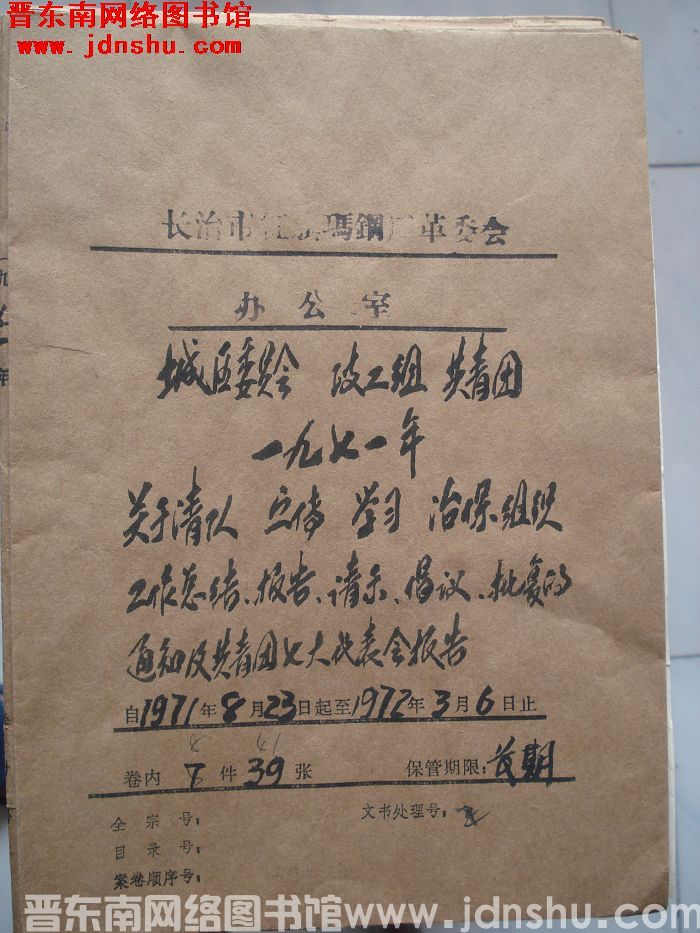 晋东南网络图书馆
www.jdnshu.com
长治市 瑪鋼厂革委会
办公室
城区委员会 政工组 共青团
一九七一年
关于清队 宣传 学习 治保、组织
工作总结、报告、请示、倡议、批复的
通知及共青团七大代表会报告
自1971年8月23日起至1972年3月6日止
8 41
卷内 7 件 39 张 保管期限：长期
全宗号： 文书处理号：
目录号：
案卷顺序号：
一九七一年
晋东南网络图书馆 www.jdnshu.com